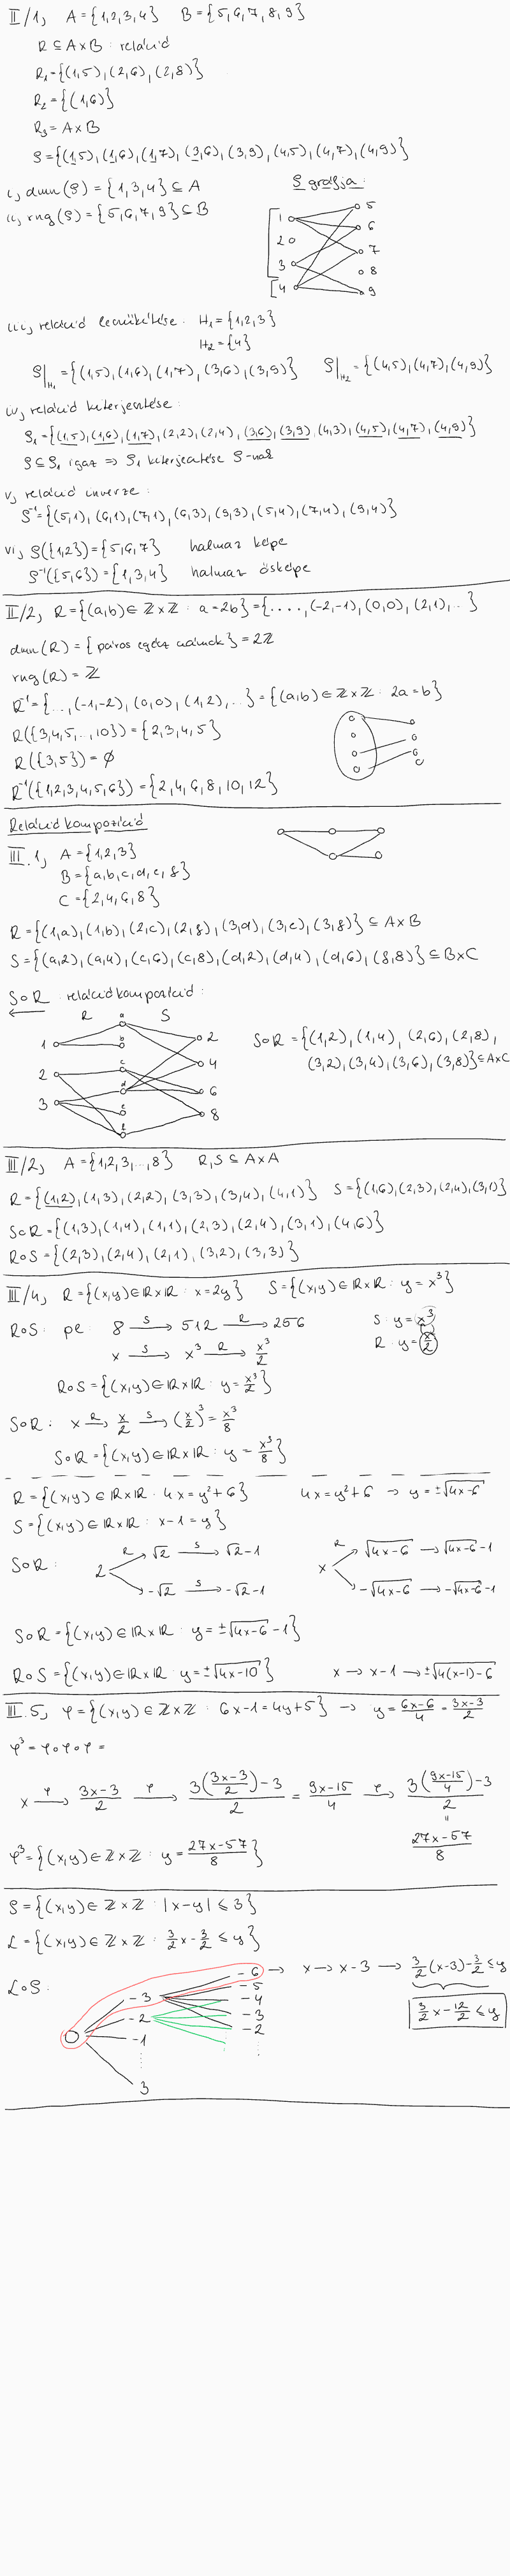 II/1, A={1,2,3,4} B={5,6,7,8,9}
R ⊆ A×B : reláció
R₁={(1,5),(2,6),(2,8)}
R₂={(1,6)}
R₃=A×B
ρ={(1,5),(1,6),(1,7),(3,6),(3,9),(4,5),(4,7),(4,9)}
i, dmn(ρ)={1,3,4}⊆A
ii, rng(ρ)={5,6,7,9}⊆B
ρ gráfja:
1 5
2 6
3 7
4 8
9
iii, reláció leszűkítése: H₁={1,2,3}
H₂={4}
ρ|H₁={(1,5),(1,6),(1,7),(3,6),(3,9)} ρ|H₂={(4,5),(4,7),(4,9)}
iv, reláció kiterjesztése:
ρ₁={(1,5),(1,6),(1,7),(2,2),(2,4),(3,6),(3,9),(4,3),(4,5),(4,7),(4,9)}
ρ⊆ρ₁ igaz ⇒ ρ₁ kiterjesztése ρ-nak
v, reláció inverze:
ρ⁻¹={(5,1),(6,1),(7,1),(6,3),(9,3),(5,4),(7,4),(9,4)}
vi, ρ({1,2})={5,6,7} halmaz képe
ρ⁻¹({5,6})={1,3,4} halmaz ősképe
II/2, R={(a,b)∈ℤ×ℤ : a=2b}={....,(-2,-1),(0,0),(2,1),..}
dmn(R)={páros egész számok}=2ℤ
rng(R)=ℤ
R⁻¹={..,(-1,-2),(0,0),(1,2),..}={(a,b)∈ℤ×ℤ: 2a=b}
R({3,4,5,..,10})={2,3,4,5}
R({3,5})=∅
R⁻¹({1,2,3,4,5,6})={2,4,6,8,10,12}
Reláció kompozíció
III.1, A={1,2,3}
B={a,b,c,d,e,f}
C={2,4,6,8}
R={(1,a),(1,b),(2,c),(2,f),(3,d),(3,e),(3,f)}⊆A×B
S={(a,2),(a,4),(c,6),(c,8),(d,2),(d,4),(d,6),(f,8)}⊆B×C
S∘R : reláció kompozíció:
R S
1 a 2
b
2 c 4
3 d 6
e 8
f
S∘R={(1,2),(1,4),(2,6),(2,8),
(3,2),(3,4),(3,6),(3,8)}⊆A×C
III/2, A={1,2,3,..,8} R,S⊆A×A
R={(1,2),(1,3),(2,2),(3,3),(3,4),(4,1)} S={(1,6),(2,3),(2,4),(3,1)}
S∘R={(1,3),(1,4),(1,1),(2,3),(2,4),(3,1),(4,6)}
R∘S={(2,3),(2,4),(2,1),(3,2),(3,3)}
III/4, R={(x,y)∈ℝ×ℝ: x=2y} S={(x,y)∈ℝ×ℝ: y=x³}
R∘S: pl: 8 →S 512 →R 256
x →S x³ →R x³/2
S: y=x³
R: y=x/2
R∘S={(x,y)∈ℝ×ℝ: y=x³/2}
S∘R: x →R x/2 →S (x/2)³=x³/8
S∘R={(x,y)∈ℝ×ℝ: y=x³/8}
R={(x,y)∈ℝ×ℝ: 4x=y²+6} 4x=y²+6 → y=±√4x-6
S={(x,y)∈ℝ×ℝ: x-1=y}
S∘R: 2 R √2 →S √2-1
-√2 →S -√2-1
x R √4x-6 → √4x-6-1
-√4x-6 → -√4x-6-1
S∘R={(x,y)∈ℝ×ℝ: y=±√4x-6-1}
R∘S={(x,y)∈ℝ×ℝ: y=±√4x-10} x → x-1 → ±√4(x-1)-6
III.5, φ={(x,y)∈ℤ×ℤ: 6x-1=4y+5} → y=6x-6/4=3x-3/2
φ³=φ∘φ∘φ=
x →φ 3x-3/2 →φ 3(3x-3/2)-3/2 = 9x-15/4 →φ 3(9x-15/4)-3/2
=
27x-57/8
φ³={(x,y)∈ℤ×ℤ: y=27x-57/8}
ρ={(x,y)∈ℤ×ℤ: |x-y|≤3}
α={(x,y)∈ℤ×ℤ: 3/2x-3/2≤y}
α∘ρ:
0
-3
-2
-1
3
-6
-5
-4
-3
-2
→ x → x-3 → 3/2(x-3)-3/2≤y
3/2x-12/2≤y